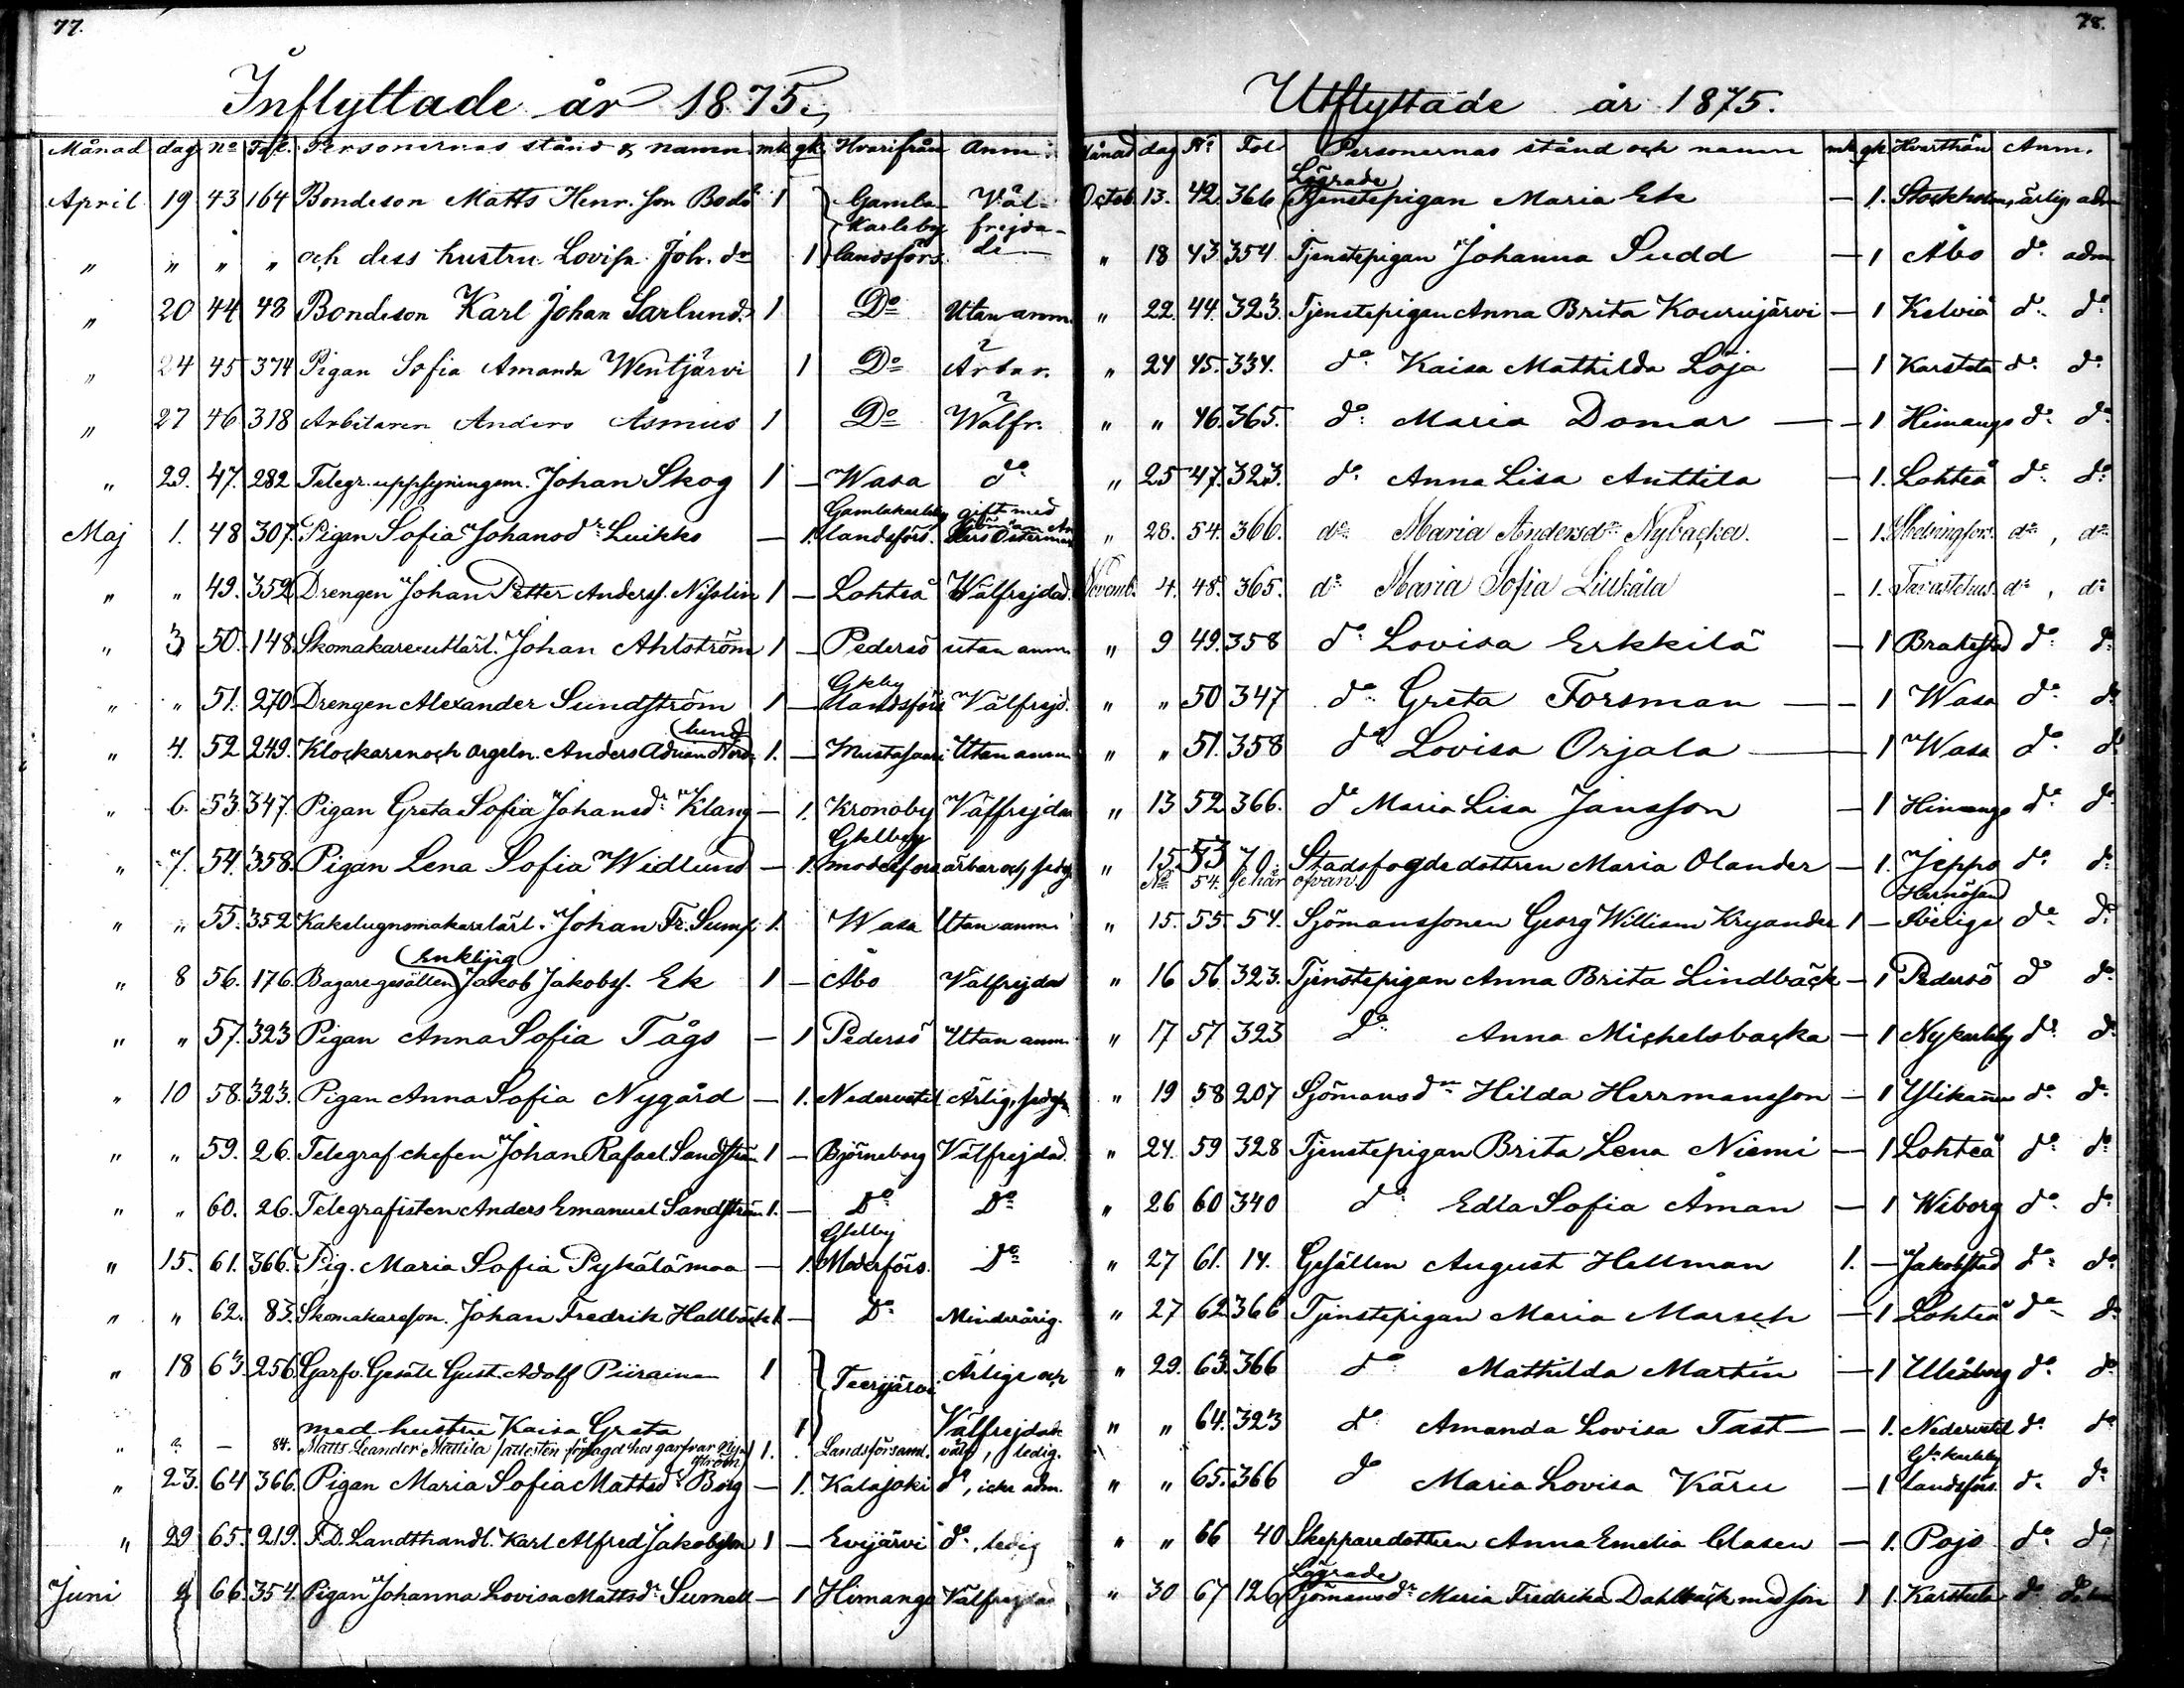 77.
Inflyttade år 1875.
Månad dag no Fol. Personernas stånd & namn mk gk Hvarifrån Anm.
April 19 43 164 Bondeson Matts Henr. son Bodö 1 Gamla Väl-
Karleby frejda-
" " " " och dess hustru Lovisa Joh. dr 1 landsförs. de
" 20 44 48 Bondeson Karl Johan Sarlund. 1 Do Utan anm.
" 24 45 374 Pigan Sofia Amanda Wentjärvi 1 Do Ärbar.
" 27 46 318 Arbetaren Anders Asmus 1 Do Wälfr.
" 29. 47. 282 Telegr. uppsyningsm. Johan Skog 1 — Wasa do
Gamlakarleby gift med
Maj 1. 48 307. Pigan Sofia Johansdr Luikko — 1. landsförs. Österman
" " 49. 352 Drengen Johan Petter Anderss. Nisslin 1 — Lohteå Wälfrejdad.
" 3 50. 148 Skomakare Johan Ahlström 1 — Pedersö utan anm.
Gkby
" " 51. 270 Drengen Alexander Sundström 1 — landsförs Välfrejd.
lund
" 4. 52 249. Klockaren och orgeln. Anders Adrian Nord- 1. — Mustasaari Utan anm.
" 6. 53 347. Pigan Greta Sofia Johansdr Klang — 1. Kronoby Välfrejdad
Gklby
" 7. 54. 358. Pigan Lena Sofia Widlund — 1. moderförs ärbar och
" " 55. 352 Kakelugnsmakarelärl. Johan Fr. Sump 1. Wasa Utan anm.
Enkling
" 8 56. 176. Bagare-gesällen Jakob Jakobss. Ek 1 — Åbo Välfrejdad
" " 57. 323 Pigan Anna Sofia Tågs — 1 Pedersö Utan anm.
" 10 58. 323. Pigan Anna Sofia Nygård — 1. Nedervetil Ärlig,
" " 59. 26. Telegrafchefen Johan Rafael Sandström 1 — Björneborg Välfrejdad.
" " 60. 26. Telegrafisten Anders Emanuel Sandström 1. — Do Do
Gkby
" 15. 61. 366. Pig. Maria Sofia Pykälämaa — 1. Moderförs. Do
" " 62. 83. Skomakareson. Johan Fredrik Hallbäck 1 — Do Minderårig.
" 18 63. 256. Garfv. Gesäll Gust. Adolf Piirainen 1 Teerijärvi Ärlige och
med hustru Kaisa Greta 1 Välfrejdade
" — 84. Matts Leander Mattila hos garfvar 1. Landsförsaml. välfr, ledig.
" 23. 64 366. Pigan Maria Sofia Mattsdr Borg — 1. Kalajoki do, icke adm.
" 29 65. 219. F.D. Landthandl. Karl Alfred Jakobsson 1 — Evijärvi do, ledig
Juni 2 66. 354. Pigan Johanna Lovisa Mattsdr Sumell — 1 Himango Välfrejdad
78.
Utflyttade år 1875.
Månad dag No Fol Personernas stånd och namn mk gk Hvarthän Anm.
Lägrade
Octob. 13. 42. 366 Tjenstepigan Maria Ek — 1. Stockholm, ärlig, adm
" 18 43. 354 Tjenstepigan Johanna Sudd — 1 Åbo do adm
" 22. 44. 323. Tjenstepigan Anna Brita Kourujärvi — 1 Kelviå do do
" 24 45. 334. do Kaisa Mathilda Löja — 1 Karstula do do
" " 46. 365. do Maria Domar — 1 Himango do do
" 25 47. 323. do Anna Lisa Anttila — 1. Lohteå do do
" 28. 54. 366. do Maria Andersdr Nybacka. — 1. Helsingfors. do, do
Novemb. 4. 48. 365. do Maria Sofia — 1. Tavastehus. do, do
" 9 49. 358 do Lovisa Erkkilä — 1 Brahestad do do
" " 50 347 do Greta Forsman — 1 Wasa do do
" " 51. 358 do Lovisa Orjala — 1 Wasa do do
" 13 52 366. do Maria Lisa Jansson — 1 Himango do do
" 15. 53 70. Stadsfogdedottren Maria Olander — 1. Jeppo do do
No 54. se här ofvan. Hernösand
" 15. 55. 54. Sjömanssonen Georg William Kryander 1 — Sverige do do
" 16 56. 323. Tjenstepigan Anna Brita Lindbäck — 1 Pedersö do do
" 17 57 323 do Anna Michelsbacka — 1 Nykarleby do do
" 19 58 207 Sjömansdr Hilda Herrmansson — 1 Ylikannu do do
" 24. 59 328 Tjenstepigan Brita Lena Niemi — 1 Lohteå do do
" 26 60 340 do Edla Sofia Åman — 1 Wiborg do do
" 27 61. 14. Gesällen August Hellman 1. — Jakobstad do do
" 27 62 366 Tjenstepigan Maria Marsch — 1 Lohteå do do
" 29. 63. 366 do Mathilda Martin — 1 Uleåborg do do
" " 64. 323 do Amanda Lovisa Tast — 1. Nedervetil do do
Gla karleby
" " 65. 366 do Maria Lovisa Käru — 1 landsförs do do
" " 66 40 Skepparedottren Anna Emelia Clasen — 1. Pojo do do
Lägrade
" 30 67 126 Sjömansdr Maria Fredrika Dahlbäck med son 1 1. Karstula do do